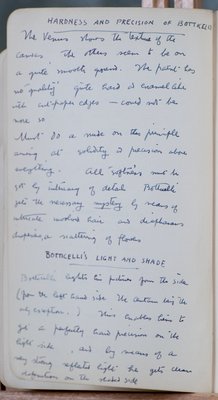 HARDNESS AND PRECISION OF BOTTICELLI
The Venus shows the texture of the
canvas. The others seem to be on
a quite smooth ground. The paint has
no 'quality' quite hard & enamel like
with cut-paper edges — could not be
more so
Must do a nude on the principle
aiming at solidity & precision above
everything. All 'softness' must be
got by intricacy of detail. Botticelli
gets the necessary mystery by means of
intricate involved hair and diaphanous
draperies, a scattering of flowers
BOTTICELLI'S LIGHT AND SHADE
Botticelli lights his pictures from the side
(from the left hand side. The centaur being the
only exception.) This enables him to
get a perfectly hard precision on the
light side, and by means of a
very strong reflected light he gets clean
on the shaded side